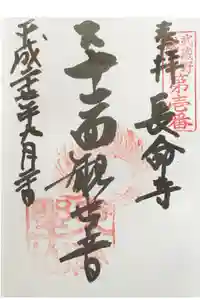 武蔵野
第壱番
奉拝
長命寺
十一面観世音
平成二十二年九月